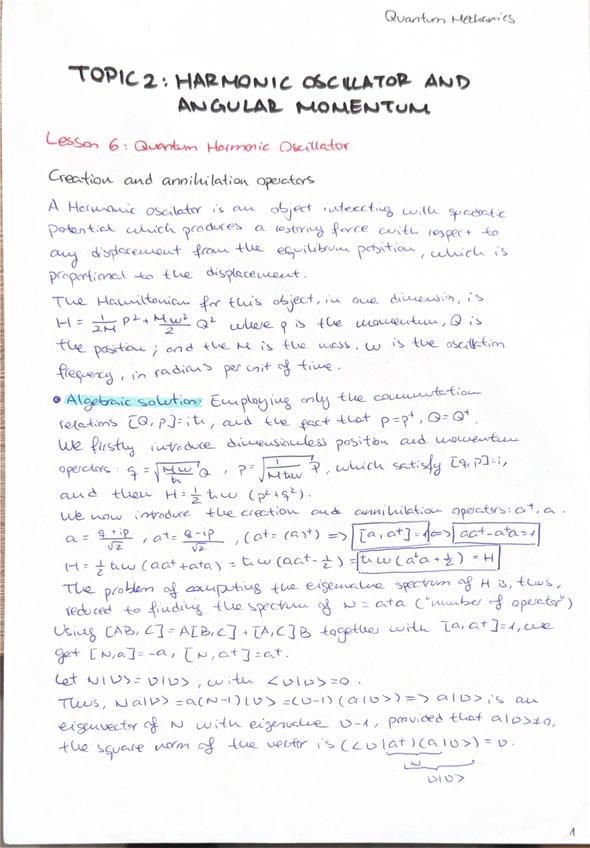 Quantum Mechanics
TOPIC 2: HARMONIC OSCILLATOR AND
ANGULAR MOMENTUM
Lesson 6: Quantum Harmonic Oscillator
Creation and annihilation operators
A Harmonic oscilator is an object interacting with quadratic
potential which produces a restoring force with respect to
any displacement from the equilibrium position, which is
proportional to the displacement.
The Hamiltonian for this object, in one dimension, is
H = 1/2M P² + Mω²/2 Q² where p is the momentum, Q is
the position; and the M is the mass. ω is the oscillation
frequency, in radians per unit of time.
• Algebraic solution: Employing only the commutation
relations [Q, P] = iħ, and the fact that P = P⁺, Q = Q⁺.
We firstly introduce dimensionless position and momentum
operators: q = √(Mω/ħ) Q, p = √(1/Mħω) P, which satisfy [q, p] = i,
and then H = 1/2 ħω (p² + q²).
We now introduce the creation and annihilation operators: a⁺, a.
a = (q + ip)/√2, a⁺ = (q - ip)/√2, (a⁺ = (a)⁺) => [a, a⁺] = 1 <=> aa⁺ - a⁺a = 1
H = 1/2 ħω (aa⁺ + a⁺a) = ħω (aa⁺ - 1/2) = ħω (a⁺a + 1/2) = H
The problem of computing the eigenvalue spectrum of H is, thus,
reduced to finding the spectrum of N = a⁺a ("number of operator")
Using [AB, C] = A[B, C] + [A, C]B together with [a, a⁺] = 1, we
get [N, a] = -a, [N, a⁺] = a⁺.
Let N|υ> = υ|υ>, with <υ|υ> ≠ 0.
Thus, N a|υ> = a(N-1)|υ> = (υ-1)(a|υ>) => a|υ> is an
eigenvector of N with eigenvalue υ-1, provided that a|υ> ≠ 0,
the square norm of the vector is (<υ|a⁺)(a|υ>) = υ.
N
υ|υ>
1